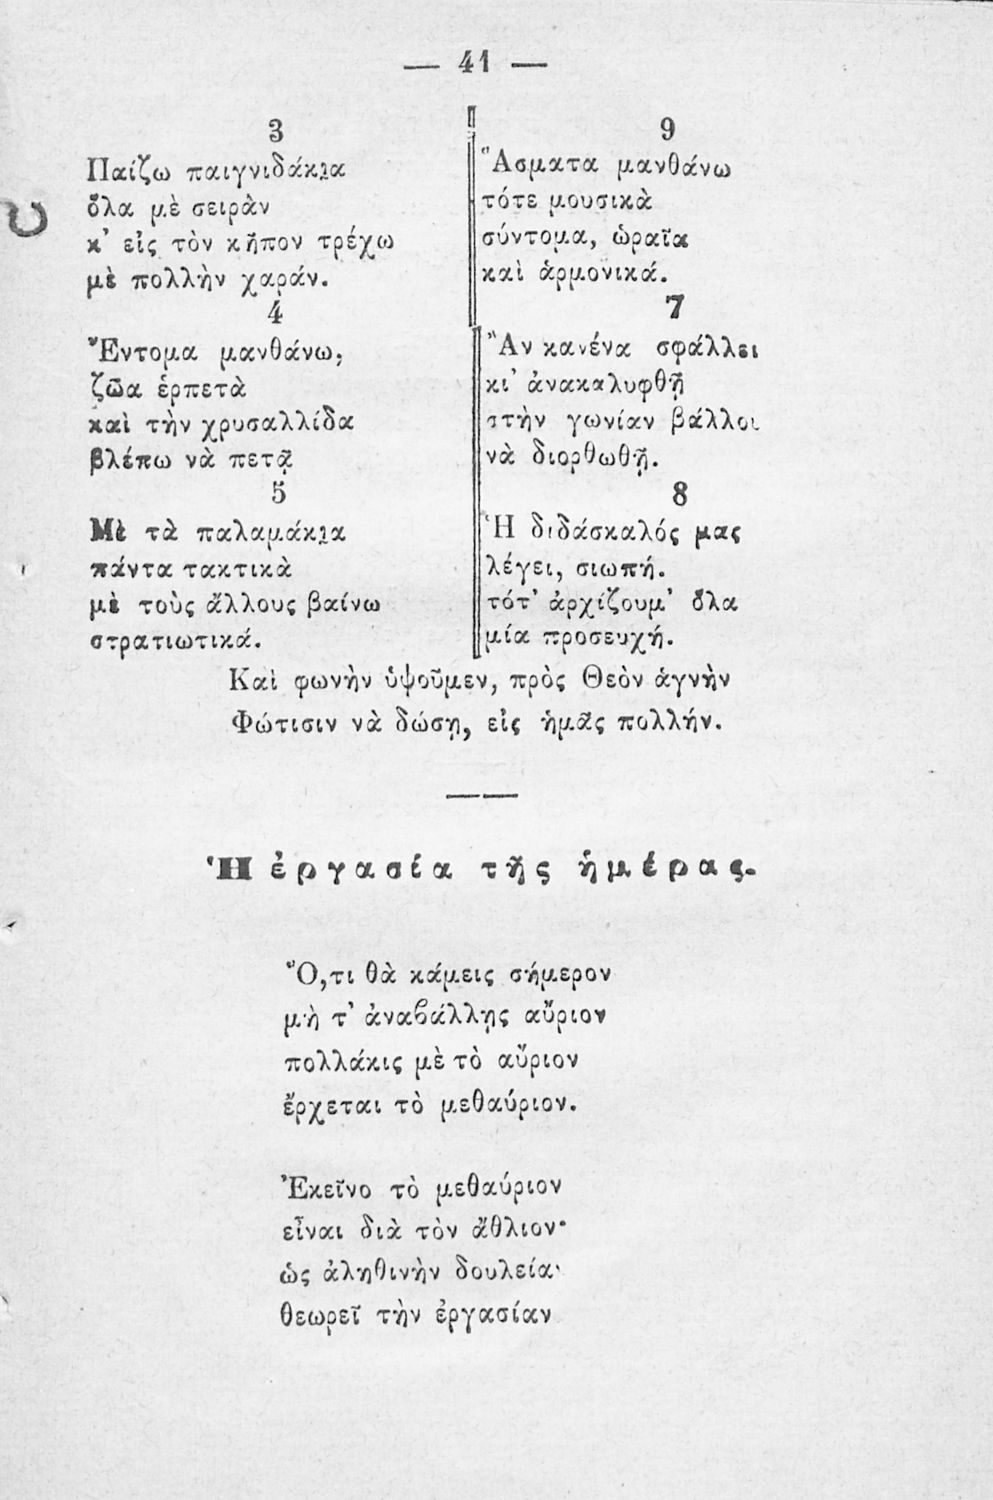 — 41 —
3
Παίζω παιγνιδάκια
ὅλα μὲ σειρὰν
κ' εἰς τὸν κῆπον τρέχω
μὲ πολλὴν χαράν.
4
Ἔντομα μανθάνω,
ζῶα ἑρπετὰ
καὶ τὴν χρυσαλλίδα
βλέπω νὰ πετᾷ
5
Μὲ τὰ παλαμάκια
πάντα τακτικὰ
μὲ τοὺς ἄλλους βαίνω
στρατιωτικά.
9
Ἄσματα μανθάνω
τότε μουσικὰ
σύντομα, ὡραῖα
καὶ ἁρμονικά.
7
Ἂν κανένα σφάλλει
κι' ἀνακαλυφθῇ
στὴν γωνίαν βάλλοι
νὰ διορθωθῇ.
8
Ἡ διδάσκαλός μας
λέγει, σιωπή.
τότ' ἀρχίζουμ' ὅλα
μία προσευχή.
Καὶ φωνὴν ὑψοῦμεν, πρὸς Θεὸν ἁγνὴν
Φώτισιν νὰ δώσῃ, εἰς ἡμᾶς πολλήν.
Ἡ ἐργασία τῆς ἡμέρας.
Ὅ,τι θὰ κάμεις σήμερον
μὴ τ' ἀναβάλλῃς αὔριον
πολλάκις μὲ τὸ αὔριον
ἔρχεται τὸ μεθαύριον.
Ἐκεῖνο τὸ μεθαύριον
εἶναι διὰ τὸν ἄθλιον·
ὡς ἀληθινὴν δουλεία·
θεωρεῖ τὴν ἐργασίαν